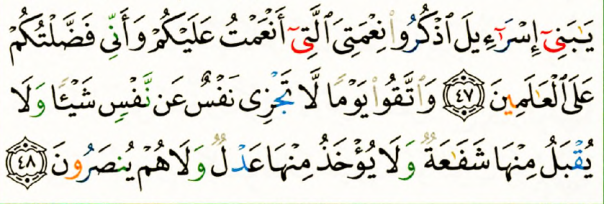 يَـٰبَنِىٓ إِسْرَٰٓءِيلَ ٱذْكُرُوا۟ نِعْمَتِىَ ٱلَّتِىٓ أَنْعَمْتُ عَلَيْكُمْ وَأَنِّى فَضَّلْتُكُمْ
عَلَى ٱلْعَـٰلَمِينَ ٤٧ وَٱتَّقُوا۟ يَوْمًا لَّا تَجْزِى نَفْسٌ عَن نَّفْسٍ شَيْـًٔا وَلَا
يُقْبَلُ مِنْهَا شَفَـٰعَةٌ وَلَا يُؤْخَذُ مِنْهَا عَدْلٌ وَلَا هُمْ يُنصَرُونَ ٤٨